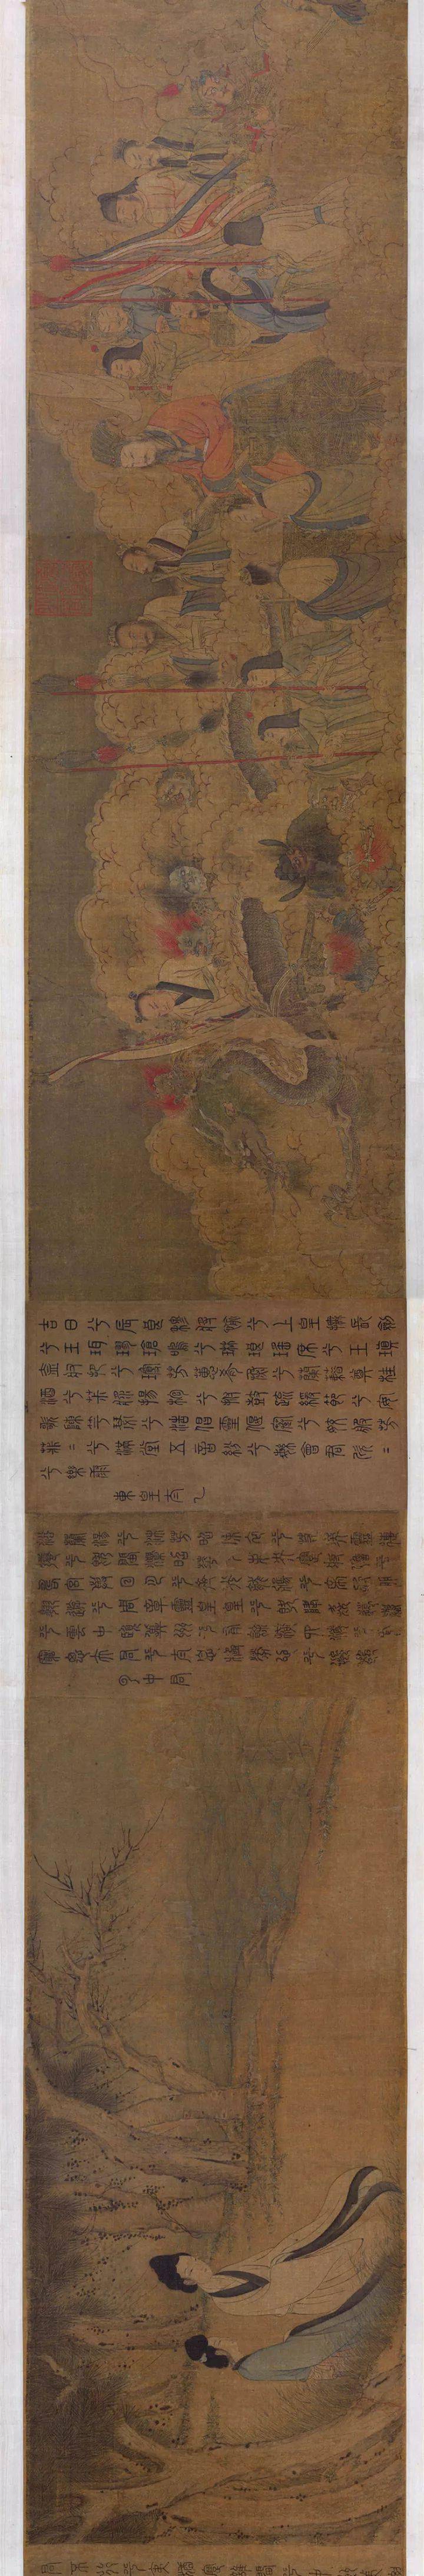 吉日兮辰良穆將愉兮上皇撫長劍
兮玉珥璆鏘鳴兮琳琅瑤席兮玉瑱
盍將把兮瓊芳蕙肴蒸兮蘭藉尊桂
酒兮椒漿揚枹兮拊鼓疏緩節兮安
歌陳竽瑟兮浩倡靈偃蹇兮姣服芳
菲=兮滿堂五音紛兮繁會君欣=
兮樂康
東皇太一
浴蘭湯兮沐芳華采衣兮若英靈連
蜷兮既留爛昭昭兮未央蹇將憺兮
壽宮與日月兮齊光龍駕兮帝服聊
翱遊兮周章靈皇皇兮既降猋遠舉
兮雲中覽冀州兮有餘橫四海兮焉
窮思夫君兮太息極勞心兮忡=
雲中君
君不行兮夷猶蹇誰留兮中洲美要